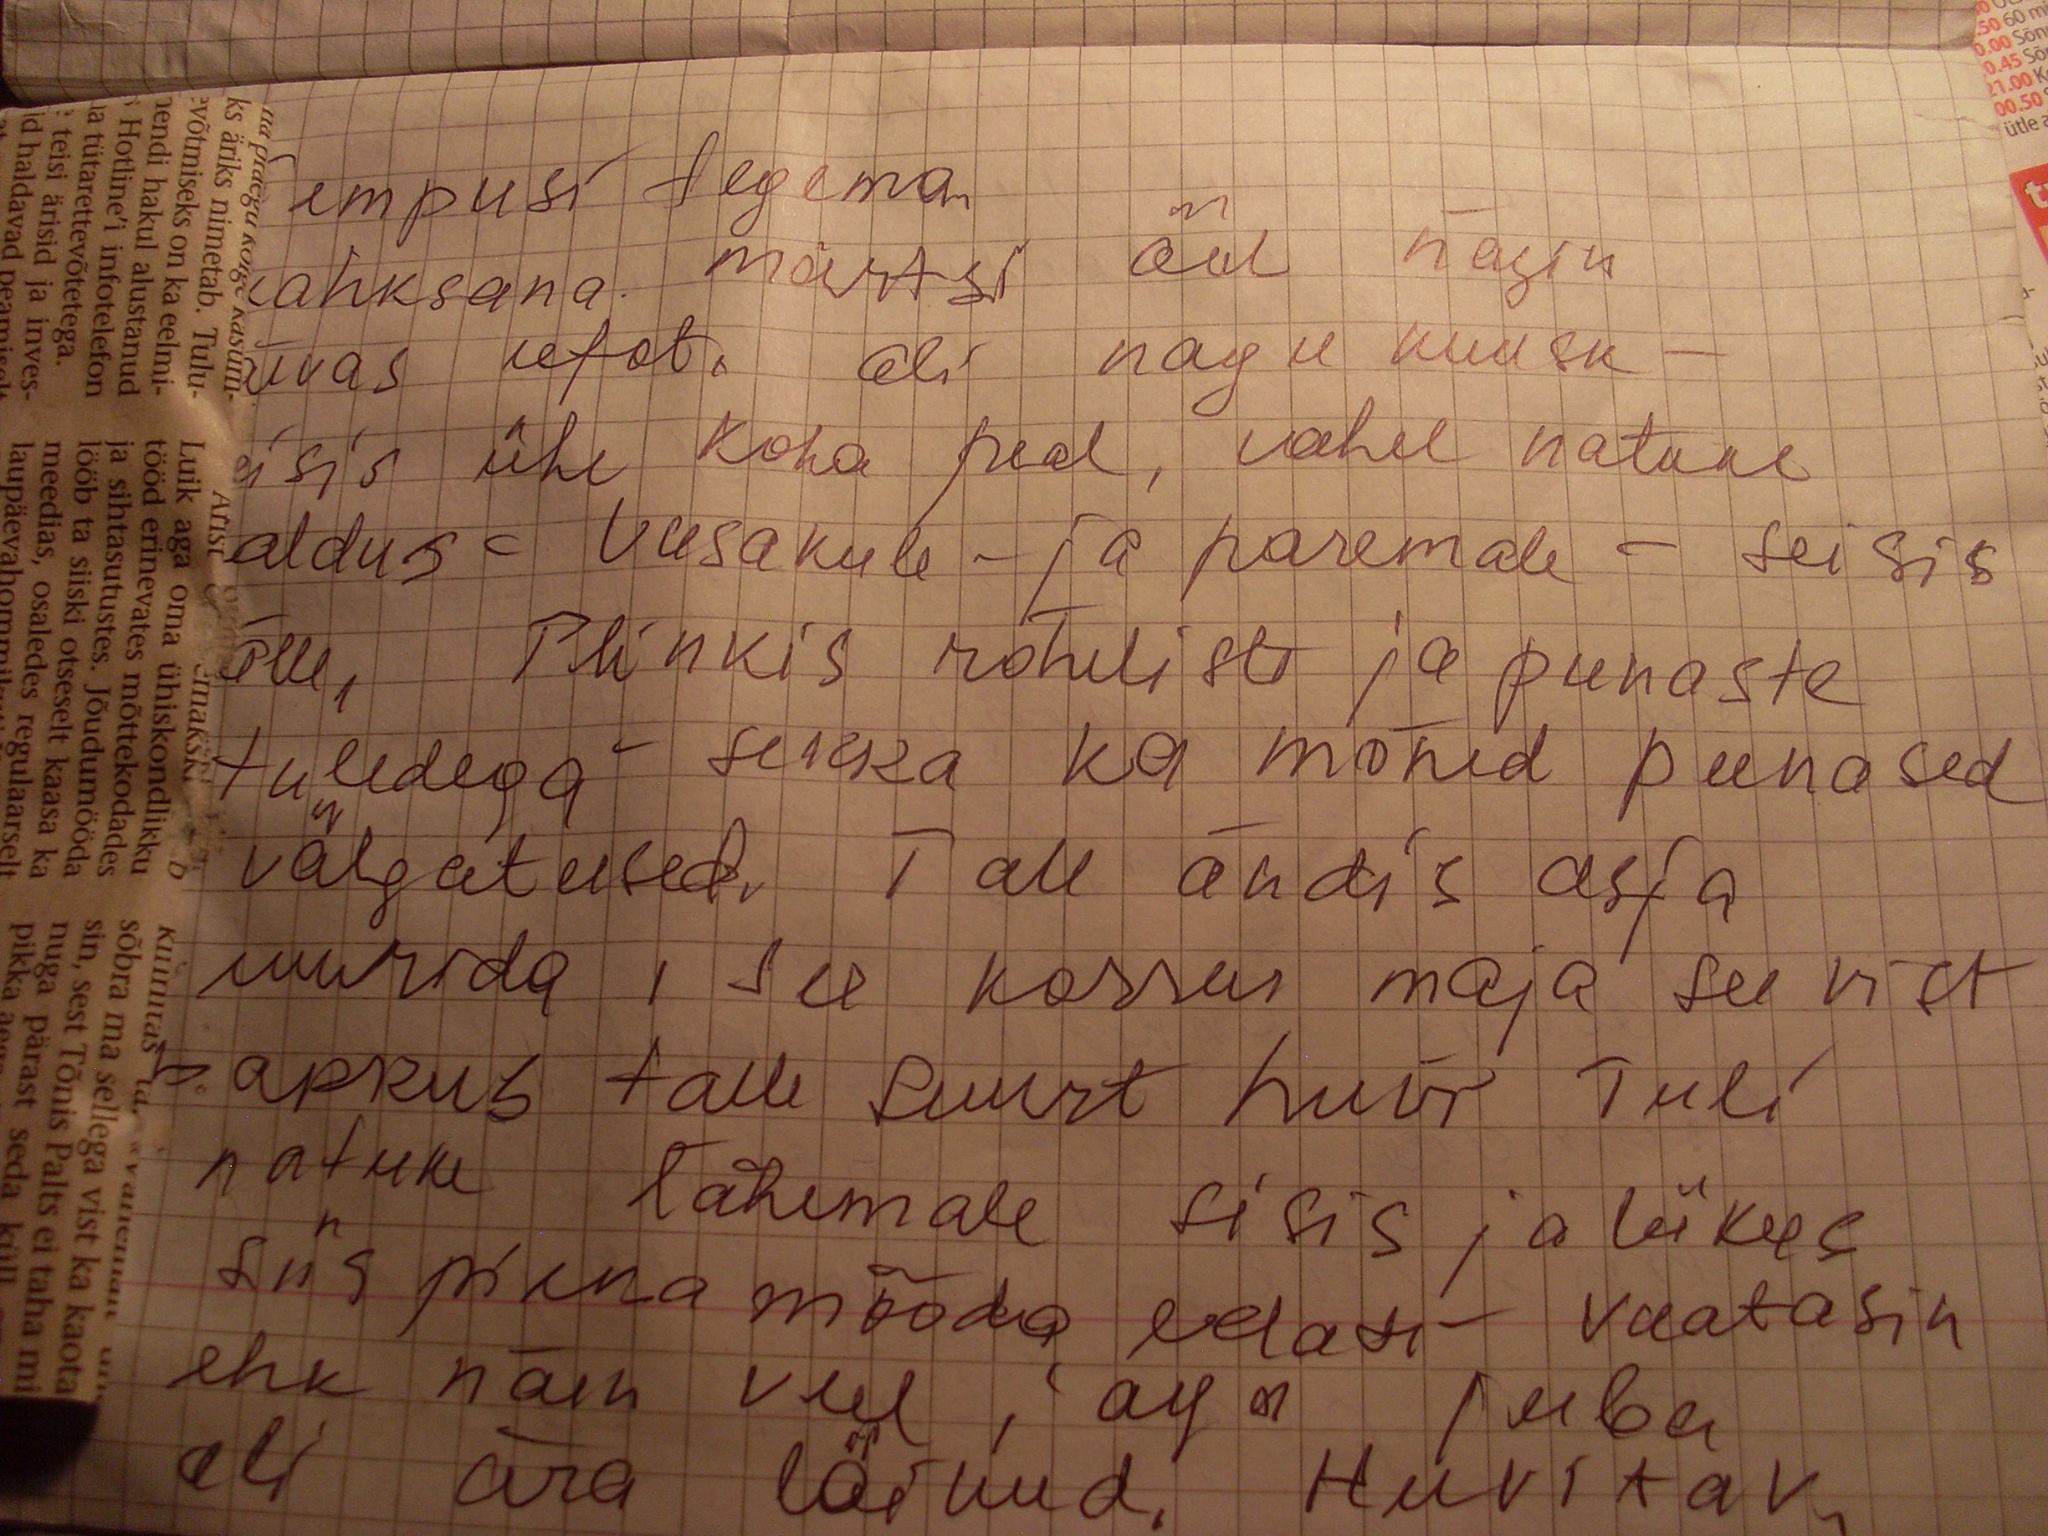 tempusi tegema.
kahksana. märtsi ööd nägin
taevas ufot. Oli nagu kuusk –
seisis ühe koha peal, vahel natuke
kaldus – vasakule – ja paremale – seisis
jälle, Plinkis roheliste ja punaste
tuledega – sekka ka mõned punased
välgatused. Talle andis asja
uurida, see korrus maja see vist
pakkus talle suurt huvi Tuli
natuke lähemale seisis ja liikus
siis piena mööda edasi – vaatasin
ehk näen veel, aga juba
oli ära läinud. Huvitav,
ks äriks nimetab. Tulu-
evõtmiseks on ka eelmi-
mendi hakul alustanud
Hotline'i infotelefon
na tütarettevõtetega.
teisi ärisid ja inves-
id haldavad peamiselt
Luik aga oma ühiskondlikku
tööd erinevates mõttekodades
ja sihtasutustes. Jõudumööda
lööb ta siiski otseselt kaasa ka
meedias, osaledes regulaarselt
laupäevahommikuti
sõbra ma sellega vist ka kaota
sin, sest Tõnis Palts ei taha mi
nuga pärast seda küll
pikka aega
50 60 mi
0.00 Sõn
0.45 Sõ
21.00 K
00.50
ütle a